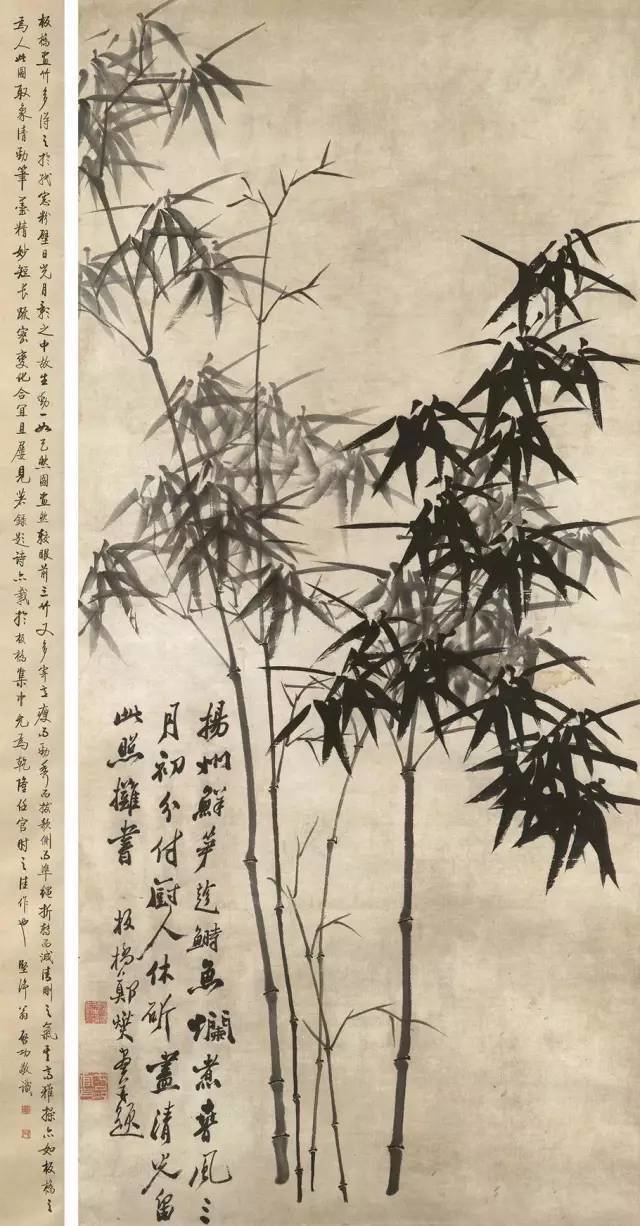 揚州鮮笋趁鰣魚爛煮春風三
月初分付厨人休斫盡清光留
此照攤書
板橋鄭燮畫并題
板橋畫竹多得之於紙窗粉壁日光月影之中故生動一如天然圖畫然較眼前之竹又多寄意瘦而勁秀而拔欹側而準繩折轉而清剛之氣高雅操亦如板橋之
為人此圖取象清勁筆墨精妙短長疏密變化合宜且屢見著錄題詩亦載於板橋集中尤為乾隆任官時之佳作也 堅淨翁啟功敬識